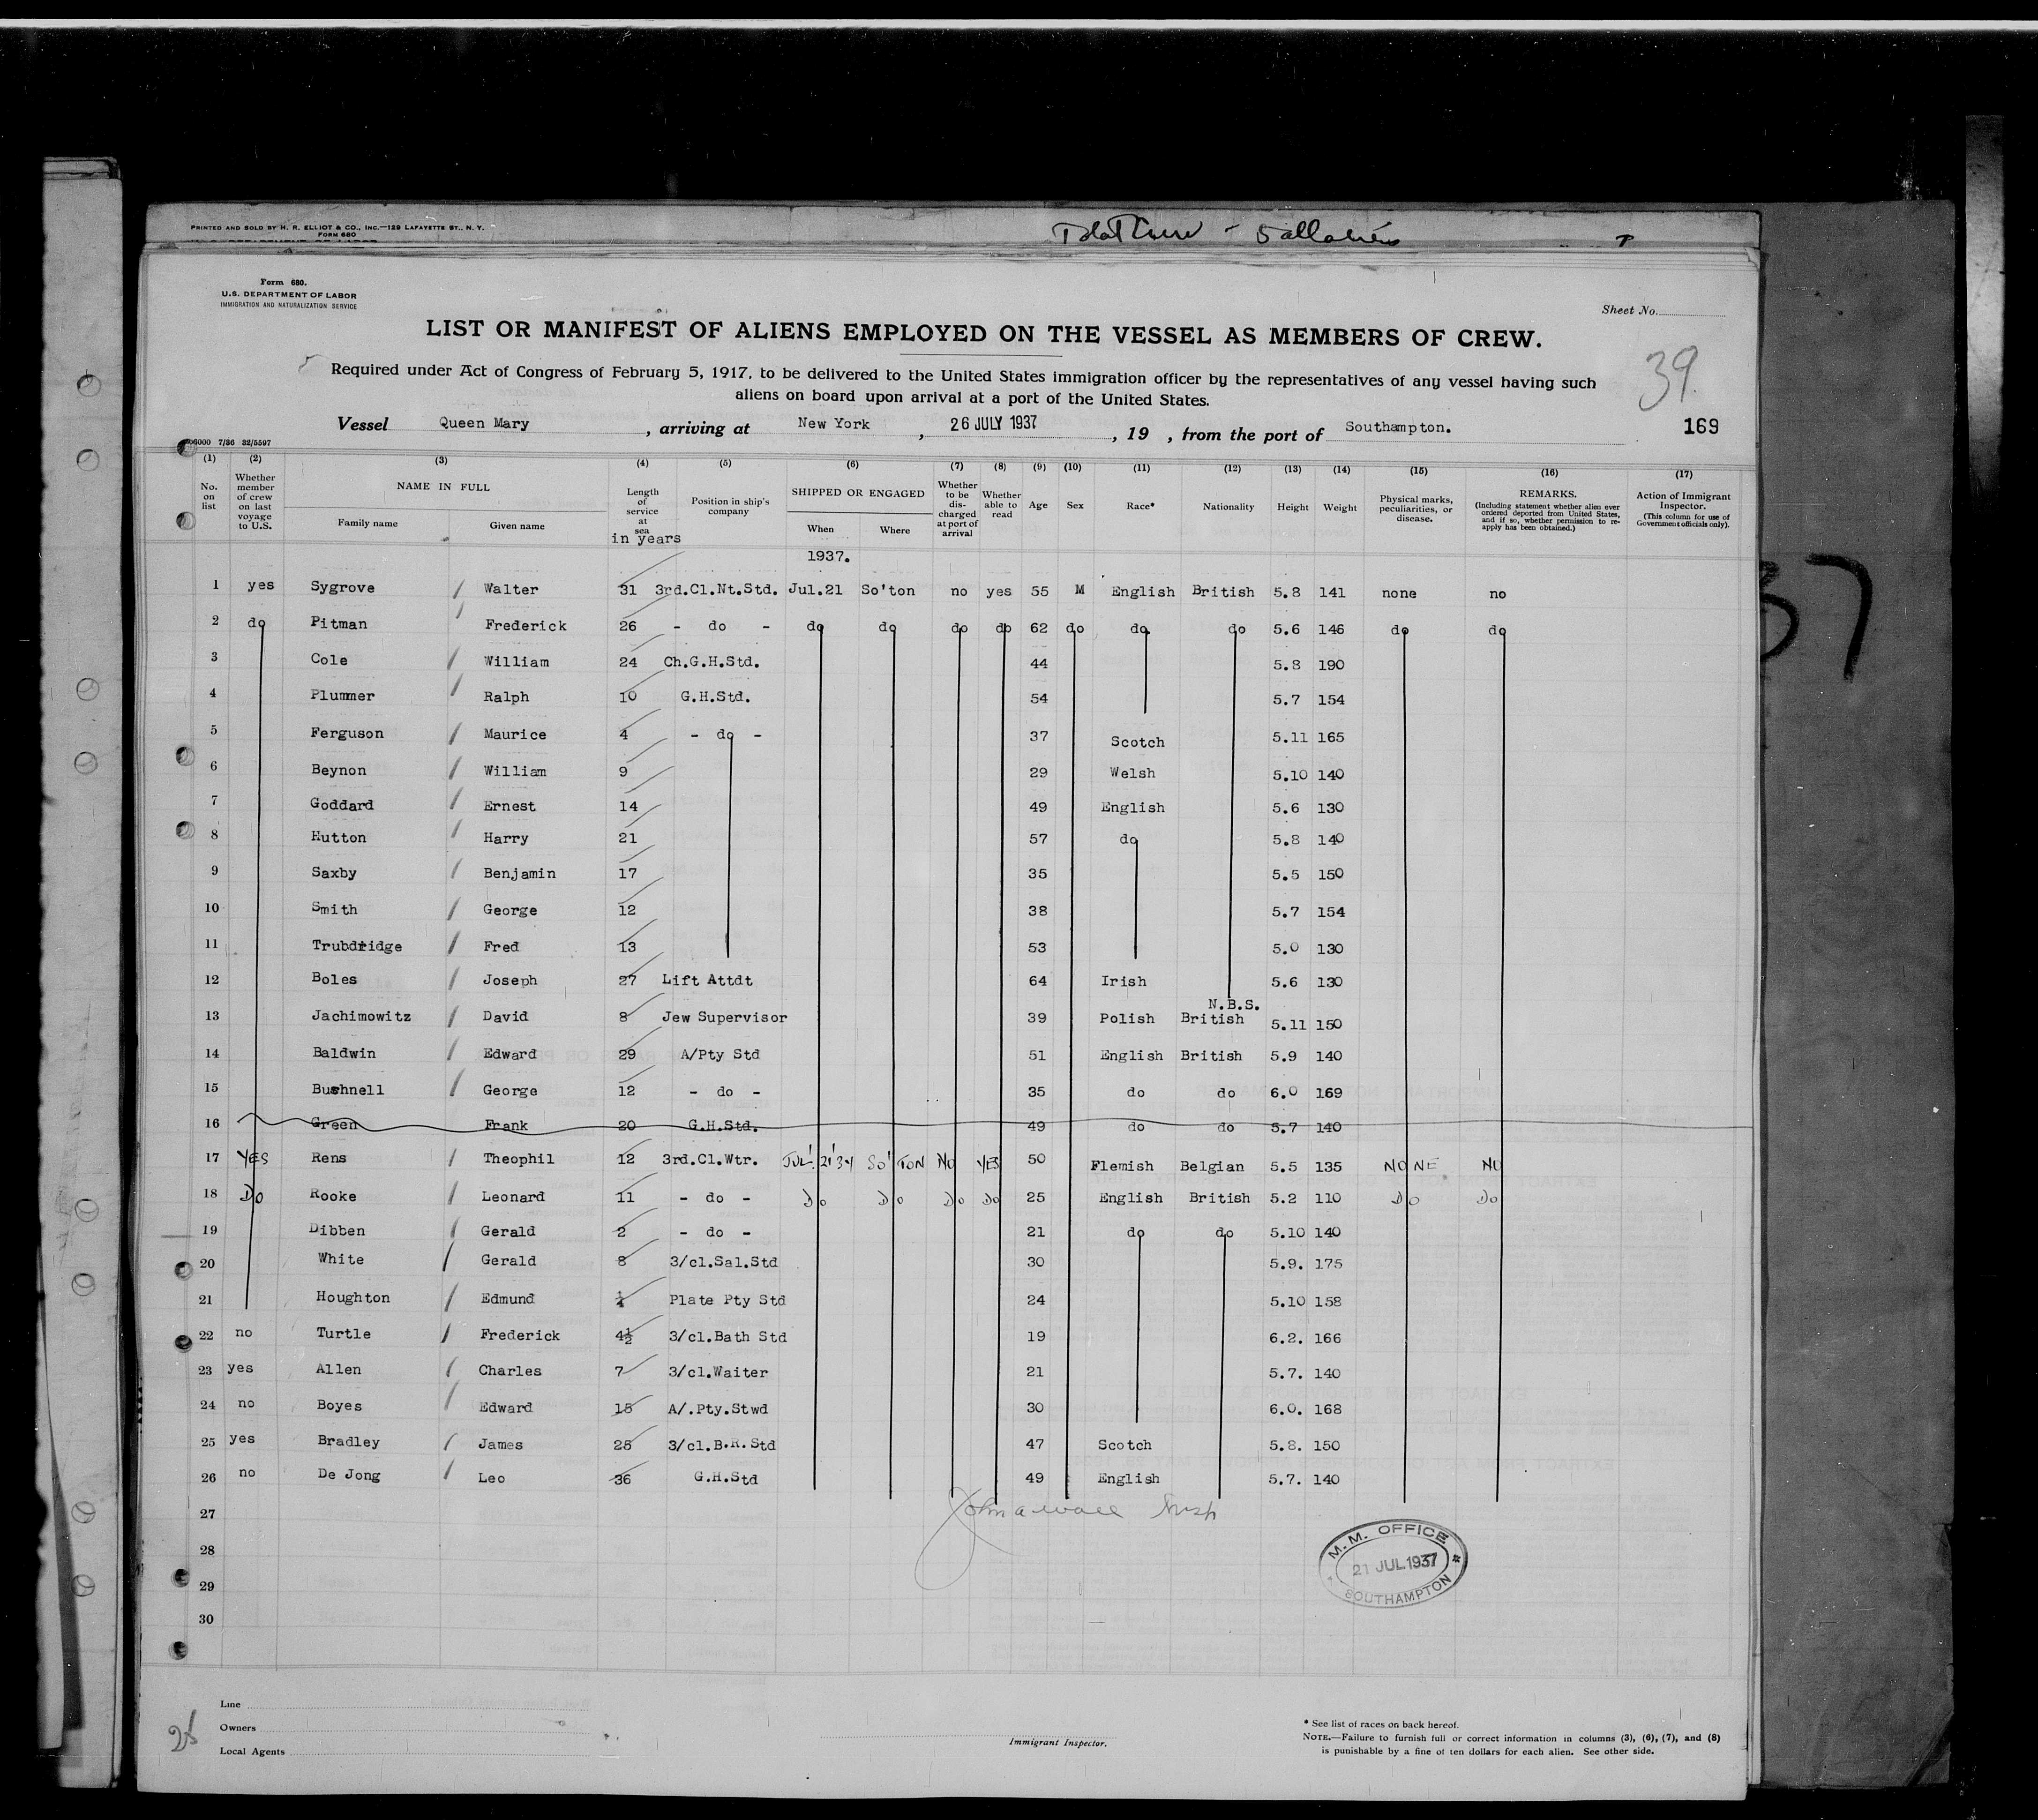 PRINTED AND SOLD BY H. R. ELLIOT & CO., INC.—129 LAFAYETTE ST., N. Y.
FORM 680
Form 680.
U.S. DEPARTMENT OF LABOR
IMMIGRATION AND NATURALIZATION SERVICE
Sheet No.
LIST OR MANIFEST OF ALIENS EMPLOYED ON THE VESSEL AS MEMBERS OF CREW.
39
Required under Act of Congress of February 5, 1917, to be delivered to the United States immigration officer by the representatives of any vessel having such
aliens on board upon arrival at a port of the United States.
Vessel Queen Mary, arriving at New York, 26 JULY 1937, 19 , from the port of Southampton. 169
6000 7/36 32/5597
(1) (2) (3) (4) (5) (6) (7) (8) (9) (10) (11) (12) (13) (14) (15) (16) (17)
No. on list
Whether member of crew on last voyage to U.S.
NAME IN FULL
Family name
Given name
Length of service at sea
in years
Position in ship's company
SHIPPED OR ENGAGED
When
Where
Whether to be discharged at port of arrival
Whether able to read
Age
Sex
Race*
Nationality
Height
Weight
Physical marks, peculiarities, or disease.
REMARKS.
(Including statement whether alien ever ordered deported from United States, and if so, whether permission to re-apply has been obtained.)
Action of Immigrant Inspector.
(This column for use of Government officials only).
1937.
1 yes Sygrove Walter 31 3rd.Cl.Nt.Std. Jul.21 So'ton no yes 55 M English British 5.8 141 none no
2 do Pitman Frederick 26 - do - do do do do 62 do do do 5.6 146 do do
3 Cole William 24 Ch.G.H.Std. 44 5.8 190
4 Plummer Ralph 10 G.H.Std. 54 5.7 154
5 Ferguson Maurice 4 - do - 37 Scotch 5.11 165
6 Beynon William 9 29 Welsh 5.10 140
7 Goddard Ernest 14 49 English 5.6 130
8 Hutton Harry 21 57 do 5.8 140
9 Saxby Benjamin 17 35 5.5 150
10 Smith George 12 38 5.7 154
11 Trubdridge Fred 13 53 5.0 130
12 Boles Joseph 27 Lift Attdt 64 Irish 5.6 130
N.B.S.
13 Jachimowitz David 8 Jew Supervisor 39 Polish British 5.11 150
14 Baldwin Edward 29 A/Pty Std 51 English British 5.9 140
15 Bushnell George 12 - do - 35 do do 6.0 169
16 Green Frank 20 G.H.Std. 49 do do 5.7 140
17 YES Rens Theophil 12 3rd.Cl.Wtr. JUL. 21'37 SO'TON NO YES 50 Flemish Belgian 5.5 135 NONE NO
18 Do Rooke Leonard 11 - do - Do Do Do Do 25 English British 5.2 110 Do Do
19 Dibben Gerald 2 - do - 21 do do 5.10 140
20 White Gerald 8 3/cl.Sal.Std 30 5.9. 175
21 Houghton Edmund Plate Pty Std 24 5.10 158
22 no Turtle Frederick 4½ 3/cl.Bath Std 19 6.2. 166
23 yes Allen Charles 7 3/cl.Waiter 21 5.7. 140
24 no Boyes Edward 15 A/.Pty.Stwd 30 6.0. 168
25 yes Bradley James 28 3/cl.B.R.Std 47 Scotch 5.8. 150
26 no De Jong Leo 36 G.H.Std 49 English 5.7. 140
27
28
29
30
M.M. OFFICE
21 JUL 1937
SOUTHAMPTON
Line
Owners
Local Agents
Immigrant Inspector.
* See list of races on back hereof.
NOTE.—Failure to furnish full or correct information in columns (3), (6), (7), and (8)
is punishable by a fine of ten dollars for each alien. See other side.